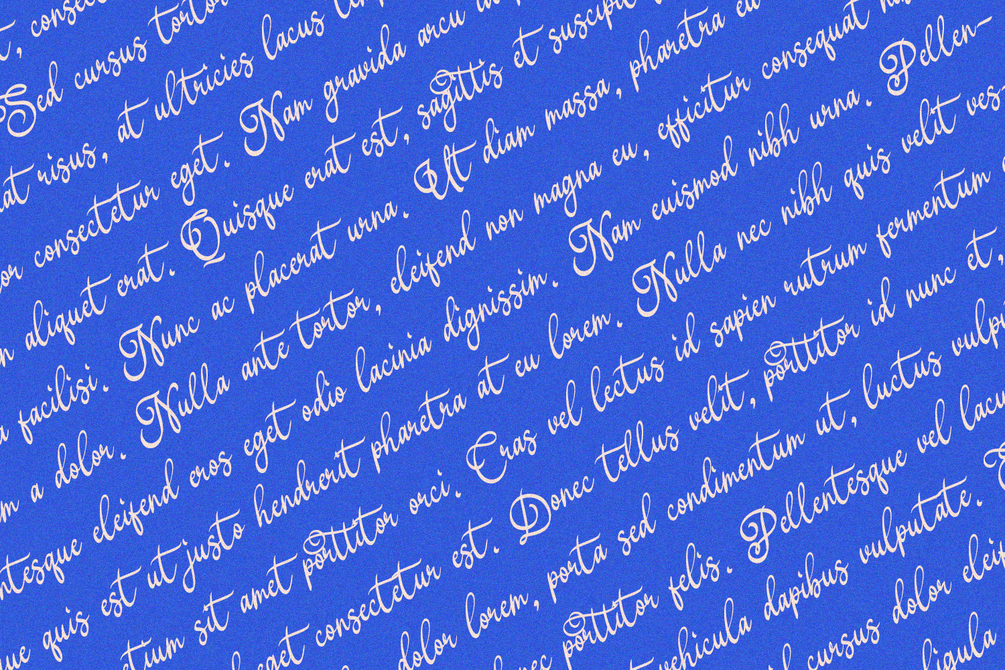 t, consec
Sed cursus tortor
at risus, at ultricies lacus
or consectetur eget. Nam gravida arcu
n aliquet erat. Quisque erat est, sagittis et suscipit
a facilisi. Nunc ac placerat urna. Ut diam massa, pharetra eu
m a dolor. Nulla ante tortor, eleifend non magna eu, efficitur consequat
ntesque eleifend eros eget odio lacinia dignissim. Nam euismod nibh urna. Pellen-
ue quis est ut justo hendrerit pharetra at eu lorem. Nulla nec nibh quis velit ves
tium sit amet porttitor orci. Cras vel lectus id sapien rutrum fermentum
eget consectetur est. Donec tellus velit, porttitor id nunc et,
dolor lorem, porta sed condimentum ut, luctus vulpu
nec porttitor felis. Pellentesque vel lacu
vehicula dapibus vulputate.
cursus dolor eleif
ligula